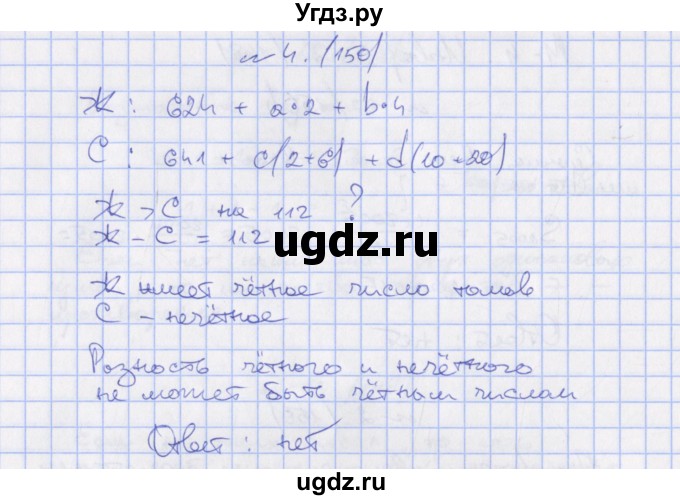 Угдз.ру
№ 4. (150)
Ж : 624 + a·2 + b·4
С : 641 + c(2+6) + d(10+20)
Ж > С на 112 ?
Ж - С = 112
ugdz.ru
Ж имеет чётное число томов
С - нечётное
Разность чётного и нечётного
не может быть чётным числом
Ответ : нет
ugdz.ru